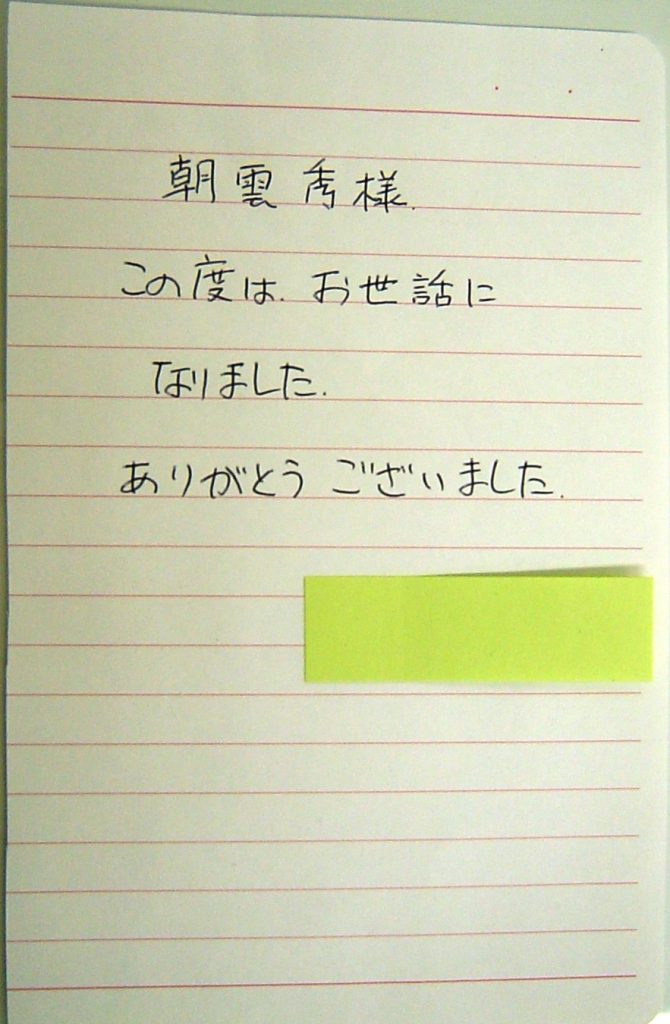 朝雲秀様.
この度は. お世話に
なりました.
ありがとう ございました.